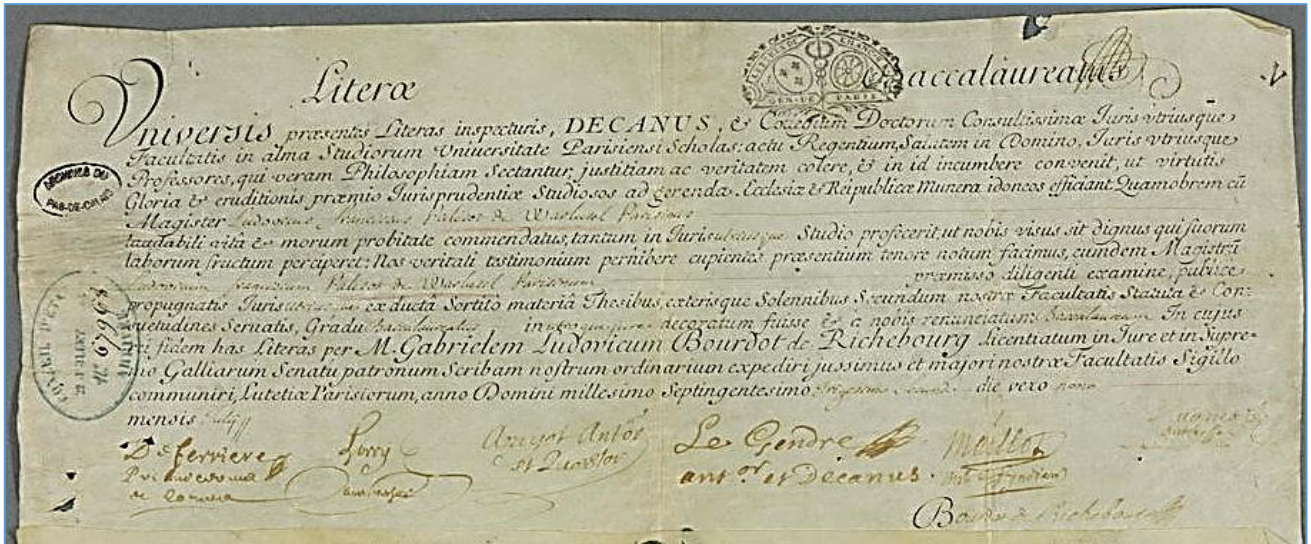 Literæ Baccalaureatus
Vniversis præsentes Literas inspecturis, DECANUS, & Collegium Doctorum Consultissimæ Iuris vtriusque
Facultatis in alma Studiorum Vniversitate Parisiensi Scholas actu Regentium, Salutem in Domino, Iuris vtriusque
Professores, qui veram Philosophiam Sectantur, justitiam ac veritatem colere, & in id incumbere convenit, ut virtutis
Gloria & eruditionis præmio Jurisprudentiæ Studiosos ad gerenda Ecclesiæ & Reipublicæ Munera idoneos efficiant. Quamobrem cū
Magister Ludovicus franciscus Palisot de Warlusel Parisinus
laudabili vita & morum probitate commendatus, tantum in Iuris utriusque Studio profecerit ut nobis visus sit dignus qui suorum
laborum fructum perciperet: Nos veritati testimonium perhibere cupientes præsentium tenore notum facimus, eundem Magistrū
Ludovicum franciscum Palisot de Warlusel Parisinum præmisso diligenti examine, publice
propugnatis Iuris utriusque ex ducta Sortitò materiâ Thesibus, cæterisque Solennibus Secundum nostræ Facultatis Statuta & Con-
suetudines Servatis, Gradu Baccalaureatus in utroque jure decoratum fuisse & à nobis renunciatum Baccalaureum In cujus
rei fidem has Literas per M. Gabrielem Ludovicum Bourdot de Richebourg Licentiatum in Jure et in Supre-
mo Galliarum Senatu patronum Scribam nostrum ordinarium expediri jussimus et majori nostræ Facultatis Sigillo
communiri, Lutetiæ Parisiorum, anno Domini millesimo Septingentesimo trigesimo secundo die vero nono
mensis
De ferriere Lorry Amyot Antor Le Gendre Maillot
et Quæstor antor et Decanus
Bourdot de Richebourg
ARCHIVES DU
PAS-DE-CALAIS
CONSEIL D'ETAT
67968
GEN. DE PARIS